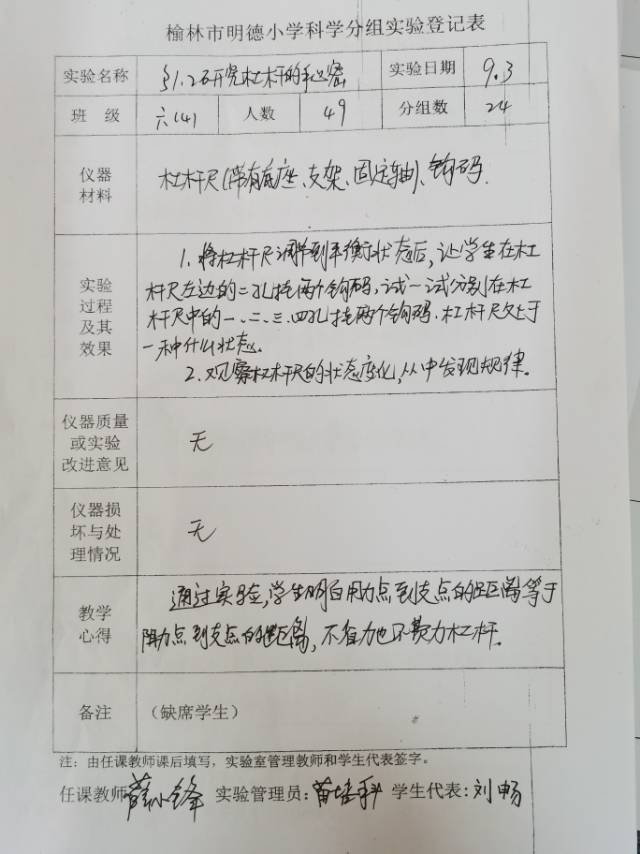 榆林市明德小学科学分组实验登记表
实验名称 §1.2研究杠杆的秘密 实验日期 9.3
班 级 六(4) 人数 49 分组数 24
仪器
材料
杠杆尺(带有底座、支架、固定轴)、钩码.
实验
过程
及其
效果
1.将杠杆尺调节到平衡状态后,让学生在杠
杆尺左边的二孔挂两个钩码.试一试分别在杠
杆尺中的一、二、三、四孔挂两个钩码.杠杆尺处于
一种什么状态。
2.观察杠杆尺的状态变化,从中发现规律.
仪器质量
或实验
改进意见
无
仪器损
坏与处
理情况
无
教学
心得
通过实验,学生明白用力点到支点的距离等于
阻力点到支点的距离,不省力也不费力杠杆.
备注 (缺席学生)
注:由任课教师课后填写,实验室管理教师和学生代表签字。
任课教师 小锋 实验管理员:苗培科 学生代表:刘畅